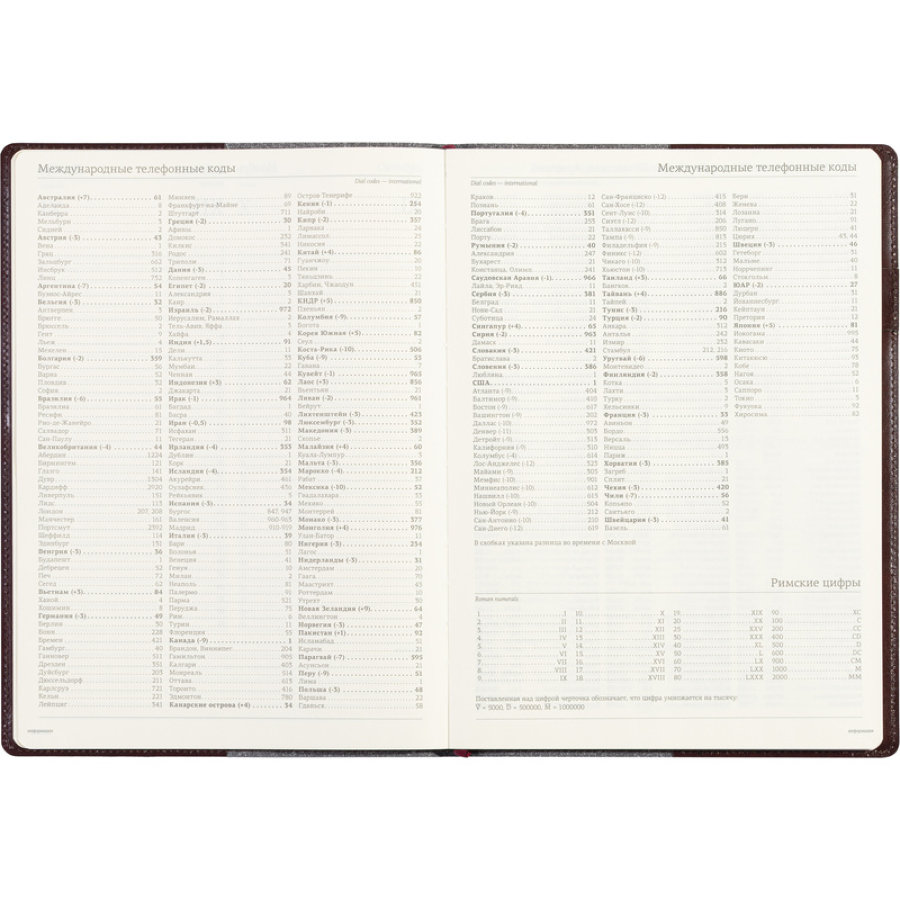 Международные телефонные коды
Dial codes — international
Австралия (+7) 61
Аделаида 8
Канберра 2
Мельбурн 3
Сидней 2
Австрия (-3) 43
Вена 1
Грац 316
Зальцбург 662
Инсбрук 512
Линц
Аргентина (-7) 54
Буэнос-Айрес 11
Бельгия (-3) 32
Антверпен 3
Брюгге 50
Брюссель 2
Гент 9
Льеж 4
Мехелен 15
Болгария (-2) 359
Бургас 56
Варна 52
Пловдив 32
София 2
Бразилия (-6) 55
Бразилиа 61
Ресифи 81
Рио-де-Жанейро 21
Салвадор 71
Сан-Паулу 11
Великобритания (-4) 44
Абердин 1224
Бирмингем 121
Глазго 141
Дувр 1304
Кардифф 2920
Ливерпуль 151
Лидс 113
Лондон 207, 208
Манчестер 161
Портсмут 2392
Шеффилд 114
Эдинбург 131
Венгрия (-3) 36
Будапешт 1
Дебрецен 52
Печ 72
Сегед 62
Вьетнам (+3) 84
Ханой 4
Хошимин 8
Германия (-3) 49
Берлин 30
Бонн 228
Бремен 421
Гамбург 40
Ганновер 511
Дрезден 351
Дуйсбург 203
Дюссельдорф 211
Карлсруэ 721
Кельн 221
Лейпциг 341
Мюнхен 89
Франкфурт-на-Майне 69
Штутгарт 711
Греция (-2) 30
Афины 1
Домокос 232
Килкис 341
Родос 241
Триполи 71
Дания (-3) 45
Копенгаген 3
Египет (-2) 20
Александрия 3
Каир 2
Израиль (-2) 972
Иерусалим, Рамаллах 2
Тель-Авив, Яффа 3
Хайфа 4
Индия (+1,5) 91
Дели 11
Калькутта 33
Мумбаи 22
Ченнаи 44
Индонезия (+3) 62
Джакарта 21
Ирак (-1) 964
Багдад 1
Басра 40
Иран (-0,5) 98
Исфахан 311
Тегеран 21
Ирландия (-4) 353
Дублин 1
Корк 21
Исландия (-4) 354
Акурейри 461
Оулафсвик 436
Рейкьявик 5
Испания (-3) 34
Бургос 847, 947
Валенсия 960-963
Мадрид 910-919
Италия (-3) 39
Бари 80
Болонья 51
Венеция 41
Генуя 10
Милан 2
Неаполь 81
Палермо 91
Парма 521
Перуджа 75
Рим 6
Турин 11
Флоренция 55
Канада (-9) 1
Брандон, Виннипег 204
Гамильтон 905
Калгари 403
Монреаль 514
Оттава 613
Торонто 416
Эдмонтон 780
Канарские острова (+4) 34
Остров Тенерифе 922
Кения (-1) 254
Найроби 20
Кипр (-2) 357
Ларнака 24
Лимассол 25
Никосия 22
Китай (+4) 86
Гуанчжоу 20
Пекин 10
Тяньцзинь 22
Харбин, Чжандун 451
Шанхай 21
КНДР (+5) 850
Пхеньян 2
Колумбия (-9) 57
Богота 1
Корея Южная (+5) 82
Сеул 2
Коста-Рика (-10) 506
Куба (-9) 53
Гавана 7
Кувейт (-1) 965
Лаос (+3) 856
Вьентьян 21
Ливан (-2) 961
Бейрут 1
Лихтенштейн (-3) 423
Люксембург (-3) 352
Македония (-3) 389
Скопье 2
Малайзия (+4) 60
Куала-Лумпур 3
Мальта (-3) 356
Марокко (-4) 212
Рабат 37
Мексика (-10) 52
Гвадалахара 33
Мехико 55
Монтеррей 81
Монако (-3) 377
Монголия (+4) 976
Улан-Батор 11
Нигерия (-3) 234
Лагос 1
Нидерланды (-3) 31
Амстердам 20
Гаага 70
Маастрихт 43
Роттердам 10
Утрехт 30
Новая Зеландия (+9) 64
Веллингтон 4
Норвегия (-3) 47
Пакистан (+1) 92
Исламабад 51
Карачи 21
Парагвай (-7) 595
Асунсьон 21
Перу (-9) 51
Лима 1
Польша (-3) 48
Варшава 22
Гданьск 58
информация
Международные телефонные коды
Dial codes — international
Краков 12
Познань 61
Португалия (-4) 351
Брага 253
Лиссабон 21
Порту 22
Румыния (-2) 40
Александрия 247
Бухарест 21
Констанца, Олимп 241
Саудовская Аравия (-1) 966
Лайла, Эр-Рияд 11
Сербия (-3) 381
Белград 11
Нови-Сад 21
Суботица 24
Сингапур (+4) 65
Сирия (-2) 963
Дамаск 11
Словакия (-3) 421
Братислава 2
Словения (-3) 386
Любляна 1
США 1
Атланта (-9) 404
Балтимор (-9) 410
Бостон (-9) 617
Вашингтон (-9) 202
Даллас (-10) 972
Денвер (-11) 303
Детройт (-9) 313
Калифорния (-9) 510
Колумбус (-4) 614
Лос-Анджелес (-12) 323
Майами (-9) 305
Мемфис (-10) 901
Миннеаполис (-10) 612
Нашвилл (-10) 615
Новый Орлеан (-10) 504
Нью-Йорк (-9) 212
Сан-Антонио (-10) 210
Сан-Диего (-12) 619
Сан-Франциско (-12) 415
Сан-Хосе (-12) 408
Сент-Луис (-10) 314
Сиэтл (-12) 206
Таллахасси (-9) 850
Тампа (-9) 813
Филадельфия (-9) 215
Финикс (-12) 602
Чикаго (-10) 312
Хьюстон (-10) 713
Таиланд (+3) 66
Бангкок 2
Тайвань (+4) 886
Тайпей 2
Тунис (-3) 216
Турция (-2) 90
Анкара 312
Анталья 242
Измир 232
Стамбул 212, 216
Уругвай (-6) 598
Монтевидео 2
Финляндия (-2) 358
Котка 5
Лахти 3
Турку 2
Хельсинки 9
Франция (-3) 33
Авиньон 49
Бордо 556
Версаль 13
Ницца 493
Париж 1
Хорватия (-3) 385
Загреб 1
Сплит 21
Чехия (-3) 420
Чили (-7) 56
Копьяпо 52
Сантьяго 2
Швейцария (-3) 41
Базель 61
Берн 31
Женева 22
Лозанна 21
Лугано 91
Люцерн 41
Цюрих 43, 44
Швеция (-3) 46
Гетеборг 31
Мальме 40
Норрчепинг 11
Стокгольм 8
ЮАР (-2) 27
Дурбан 31
Йоханнесбург 11
Кейптаун 21
Претория 12
Япония (+5) 81
Иокогама 995
Кавасаки 44
Киото 75
Китакюсю 93
Кобе 78
Нагоя 52
Осака 6
Саппоро 11
Токио 3
Фукуока 92
Хиросима 82
В скобках указана разница во времени с Москвой
Римские цифры
Roman numerals
1 I 10 X 19 XIX 90 XC
2 II 11 XI 20 XX 100 C
3 III 12 XII 25 XXV 200 CC
4 IV 13 XIII 30 XXX 400 CD
5 V 14 XIV 40 XL 500 D
6 VI 15 XV 50 L 600 DC
7 VII 16 XVI 60 LX 900 CM
8 VIII 17 XVII 70 LXX 1000 M
9 IX 18 XVIII 80 LXXX 2000 MM
Поставленная над цифрой черточка обозначает, что цифра умножается на тысячу:
V̅ = 5000, D̅ = 500000, M̅ = 1000000
информация